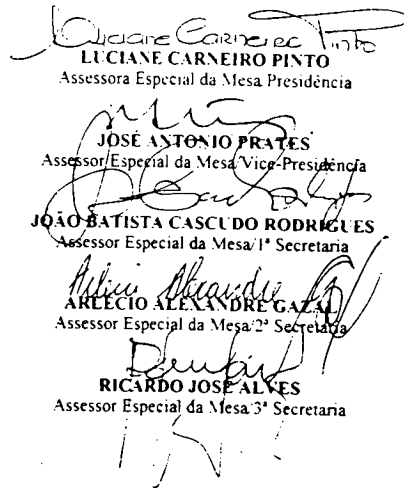 Luciane Carneiro Pinto
LUCIANE CARNEIRO PINTO
Assessora Especial da Mesa Presidência
JOSÉ ANTONIO PRATES
Assessor Especial da Mesa/Vice-Presidência
JOÃO BATISTA CASCUDO RODRIGUES
Assessor Especial da Mesa/1ª Secretaria
Arlécio Alexandre
ARLÉCIO ALEXANDRE GAZAL
Assessor Especial da Mesa/2ª Secretaria
RICARDO JOSÉ ALVES
Assessor Especial da Mesa/3ª Secretaria